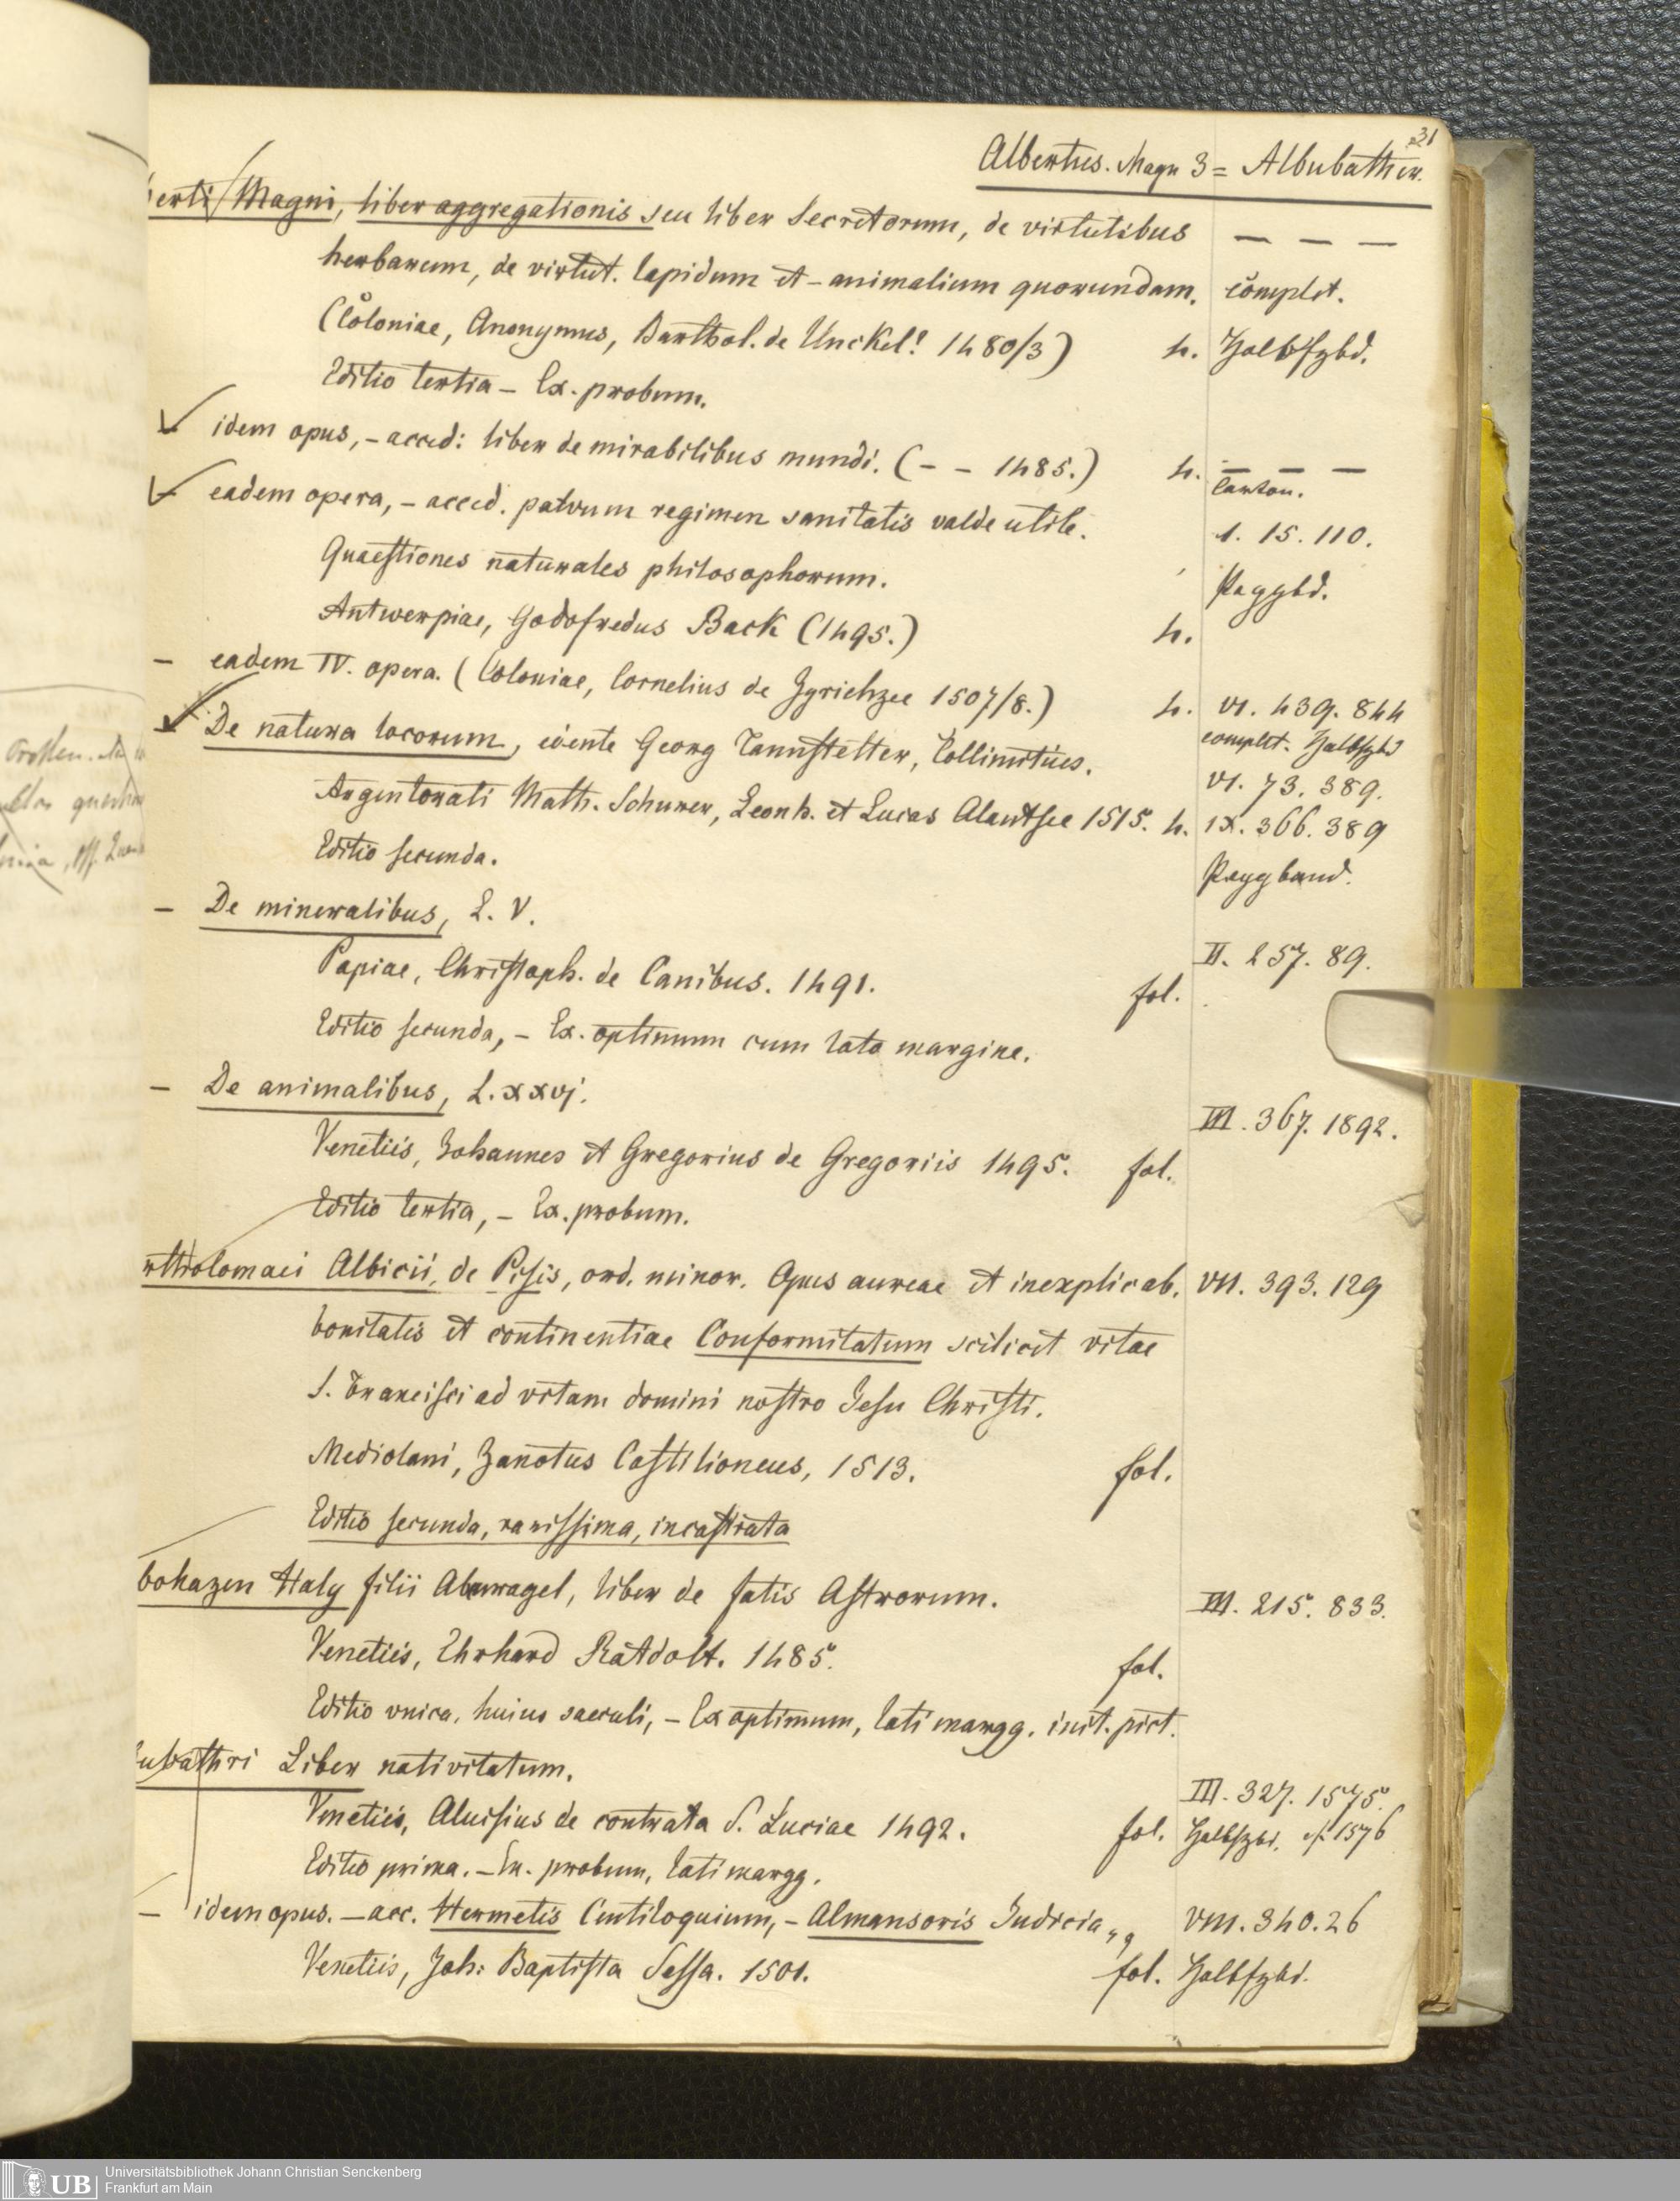 31
Albertus. Magn 3 = Albubather.
berti Magni, liber aggregationis seu liber Secretorum, de virtutibus — — —
herbarum, de virtut. lapidum et animalium quorundam. complet.
(Coloniae, Anonymus, Barthol. de Unckel! 1480/3) 4. Halbfzbd.
Editio tertia – Ex. probum.
idem opus, – acced: liber de mirabilibus mundi. ( – – 1485.) 4. — — —
carton.
eadem opera, – acced. parvum regimen sanitatis valde utile. 1. 15. 110.
Quaestiones naturales philosophorum. Pappbd.
Antwerpiae, Godofredus Back (1495.) 4.
– eadem IV. opera. (Coloniae, Cornelius de Zyrichzee 1507/8.) 4. VI. 439. 844
complet. Halbfzbd
De natura locorum, edente Georg Tannstetter, Collimitius. VI. 73. 389.
Argentorati Math. Schurer, Leonh. et Lucas Alantsee 1515. 4. IX. 366. 389
Editio secunda. Pappband.
– De mineralibus, L. V.
Papiae, Christoph. de Canibus. 1491. fol. II. 257. 89.
Editio secunda, – Ex. optimum cum lato margine.
– De animalibus, L. xxvj. III. 367. 1892.
Venetiis, Johannes et Gregorius de Gregoriis 1495. fol.
Editio tertia, – Ex. probum.
rtholomaei Albicii, de Pisis, ord. minor. Opus aureae et inexplicab. VII. 393. 129
bonitatis et continentiae Conformitatum scilicet vitae
S. Francisci ad vitam domini nostro Jesu Christi.
Mediolani, Zanotus Castilioneus, 1513. fol.
Editio secunda, rarissima, incastrata
bohazen Haly filii Abenragel, liber de fatis Astrorum. III. 215. 833.
Venetiis, Ehrhard Ratdolt. 1485. fol.
Editio unica, huius saeculi, – Ex optimum, lati margg. init. pict.
lubathri Liber nativitatum. III. 327. 1575.
Venetiis, Aluisius de contrata S. Luciae 1492. fol. Halbfzbd. cf. 1576
Editio prima. – Ex. probum, lati margg.
– idem opus. – acc. Hermetis Centiloquium, – Almansoris Judicia VIII. 340. 26
Venetiis, Joh: Baptista Sessa. 1501. fol. Halbfzbd.
UB
Universitätsbibliothek Johann Christian Senckenberg
Frankfurt am Main